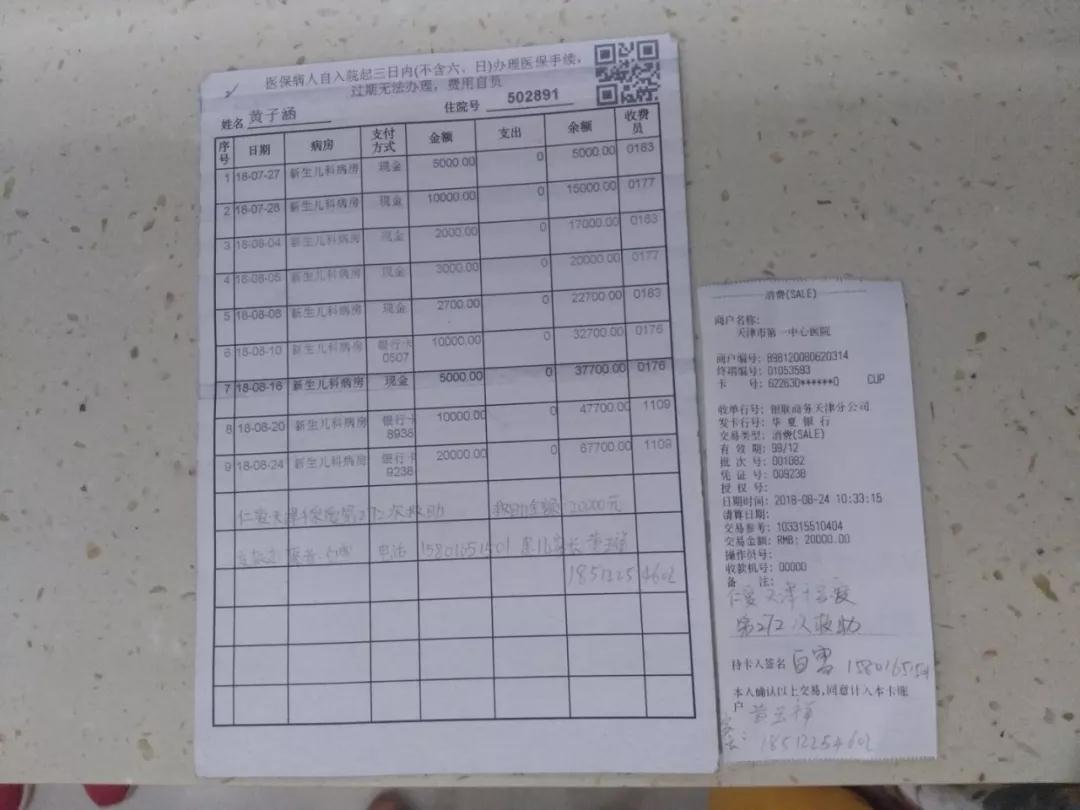 医保病人自入院起三日内(不含六、日)办理医保手续，
过期无法办理，费用自负
姓名 黄子涵 住院号 502891
序号 日期 病房 支付方式 金额 支出 余额 收费员
1 18-07-27 新生儿科病房 现金 5000.00 0 5000.00 0163
2 18-07-28 新生儿科病房 现金 10000.00 0 15000.00 0177
3 18-08-04 新生儿科病房 现金 2000.00 0 17000.00 0163
4 18-08-05 新生儿科病房 现金 3000.00 0 20000.00 0177
5 18-08-08 新生儿科病房 现金 2700.00 0 22700.00 0163
6 18-08-10 新生儿科病房 银行卡 0507 10000.00 0 32700.00 0176
7 18-08-16 新生儿科病房 现金 5000.00 0 37700.00 0176
8 18-08-20 新生儿科病房 银行卡 8938 10000.00 0 47700.00 1109
9 18-08-24 新生儿科病房 银行卡 9238 20000.00 0 67700.00 1109
仁爱天津 第272次救助 救助金额:20000元
电话 15801651501 患儿家长
18512254602
消费(SALE)
商户名称:
天津市第一中心医院
商户编号: 898120080620314
终端编号: 01053593
卡 号: 622630******0 CUP
收单行号: 银联商务天津分公司
发卡行号: 华夏银行
交易类型: 消费(SALE)
有效期: 99/12
批次号: 001082
凭证号: 009238
授权号:
日期时间: 2018-08-24 10:33:15
清算日期:
交易参考: 103315510404
交易金额: RMB: 20000.00
操作员号:
收款机号: 00000
备 注:
仁爱天津
第272次救助
持卡人签名 白雪 158016515
本人确认以上交易,同意计入本卡账
户
18512254602